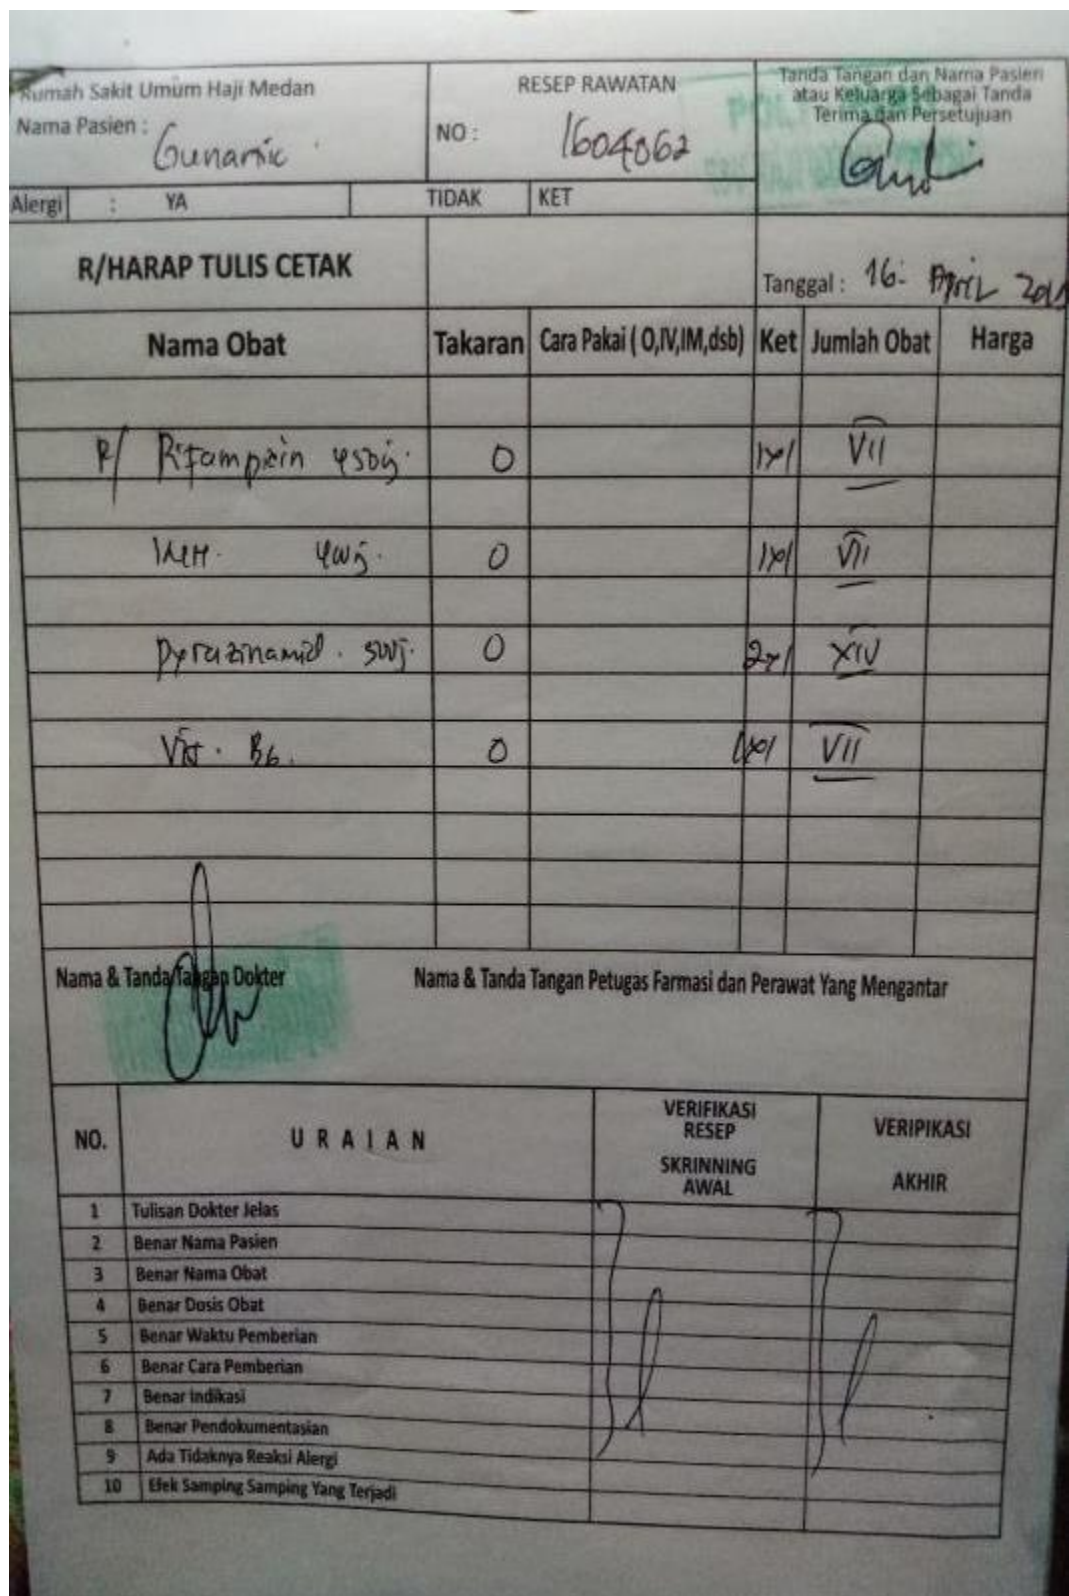 Rumah Sakit Umum Haji Medan
Nama Pasien :
RESEP RAWATAN
NO : 1604062
Tanda Tangan dan Nama Pasien
atau Keluarga Sebagai Tanda
Terima dan Persetujuan
Alergi : YA TIDAK KET
R/HARAP TULIS CETAK
Tanggal : 16 April
Nama Obat Takaran Cara Pakai ( O,IV,IM,dsb) Ket Jumlah Obat Harga
R/ Rifampicin 450 mg. O 1x1 VII
INH. 400 mg. O 1x1 VII
Pyrazinamid. 500 mg. O 2x1 XIV
Vit. B6. O 1x1 VII
Nama & Tanda Tangan Dokter
Nama & Tanda Tangan Petugas Farmasi dan Perawat Yang Mengantar
NO. URAIAN
VERIFIKASI
RESEP
SKRINNING
AWAL
VERIPIKASI
AKHIR
1 Tulisan Dokter Jelas
2 Benar Nama Pasien
3 Benar Nama Obat
4 Benar Dosis Obat
5 Benar Waktu Pemberian
6 Benar Cara Pemberian
7 Benar Indikasi
8 Benar Pendokumentasian
9 Ada Tidaknya Reaksi Alergi
10 Efek Samping Samping Yang Terjadi